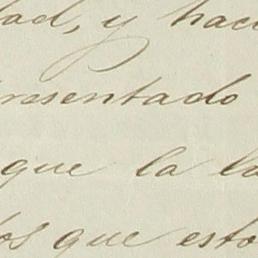 dad, y haci
resentado
que la la
os que esto